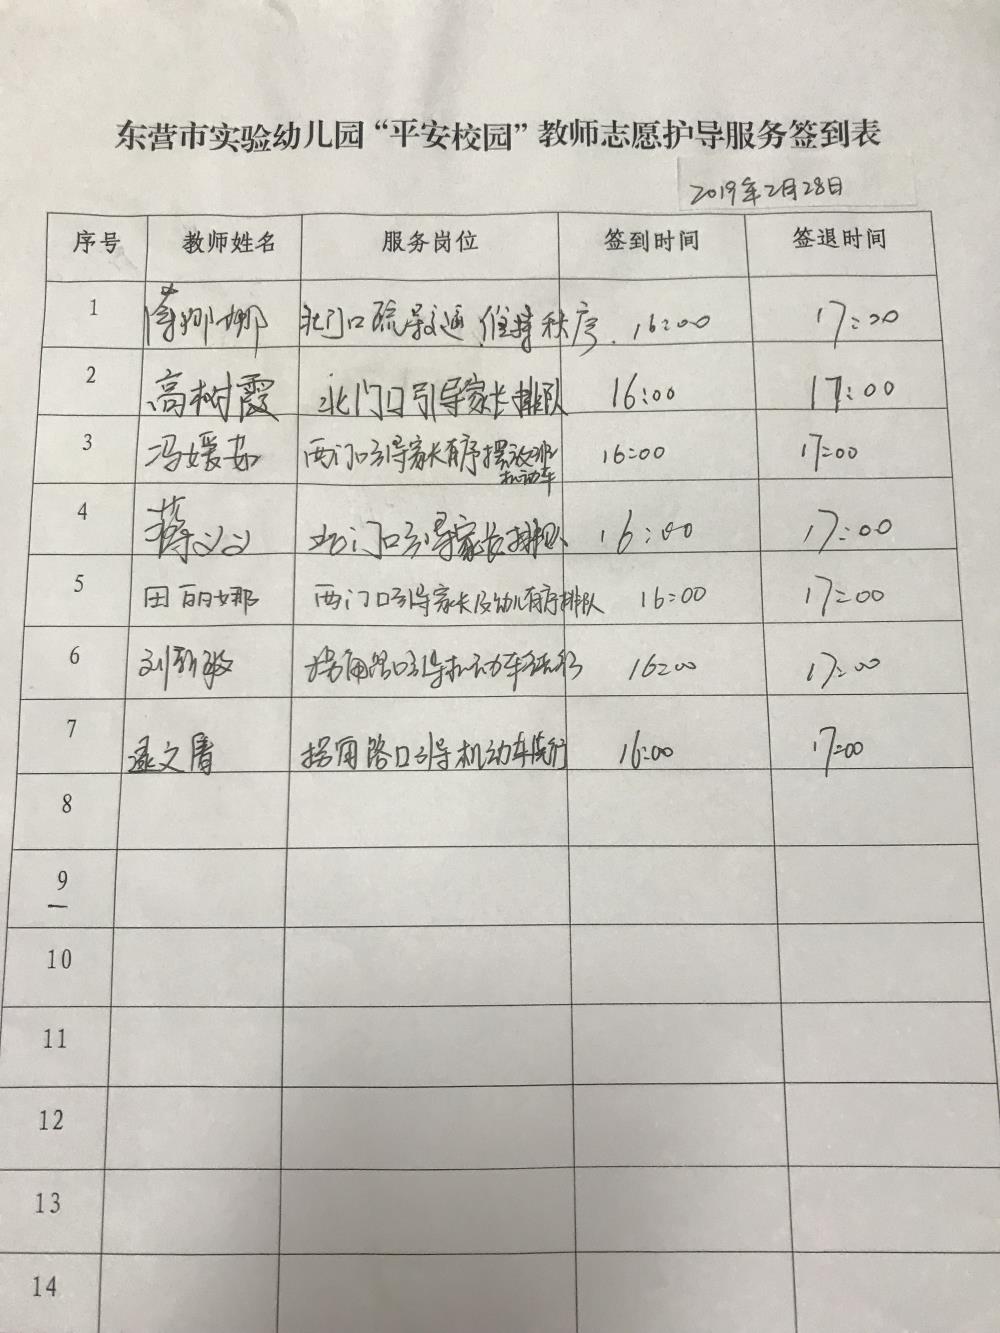 东营市实验幼儿园“平安校园”教师志愿护导服务签到表
2019年2月28日
序号 教师姓名 服务岗位 签到时间 签退时间
1 娜娜 北门口疏导交通,维持秩序. 16:00 17:00
2 高树霞 北门口引导家长排队 16:00 17:00
3 冯媛茹 西门口引导家长有序摆放非机动车 16:00 17:00
4 蒋 门口引导家长排队 16:00 17:00
5 田丽娜 西门口引导家长及幼儿有序排队 16:00 17:00
6 刘敏 拐角路口引导机动车绕行 16:00 17:00
7 孟文眉 拐角路口引导机动车绕行 16:00 17:00
8
9
10
11
12
13
14